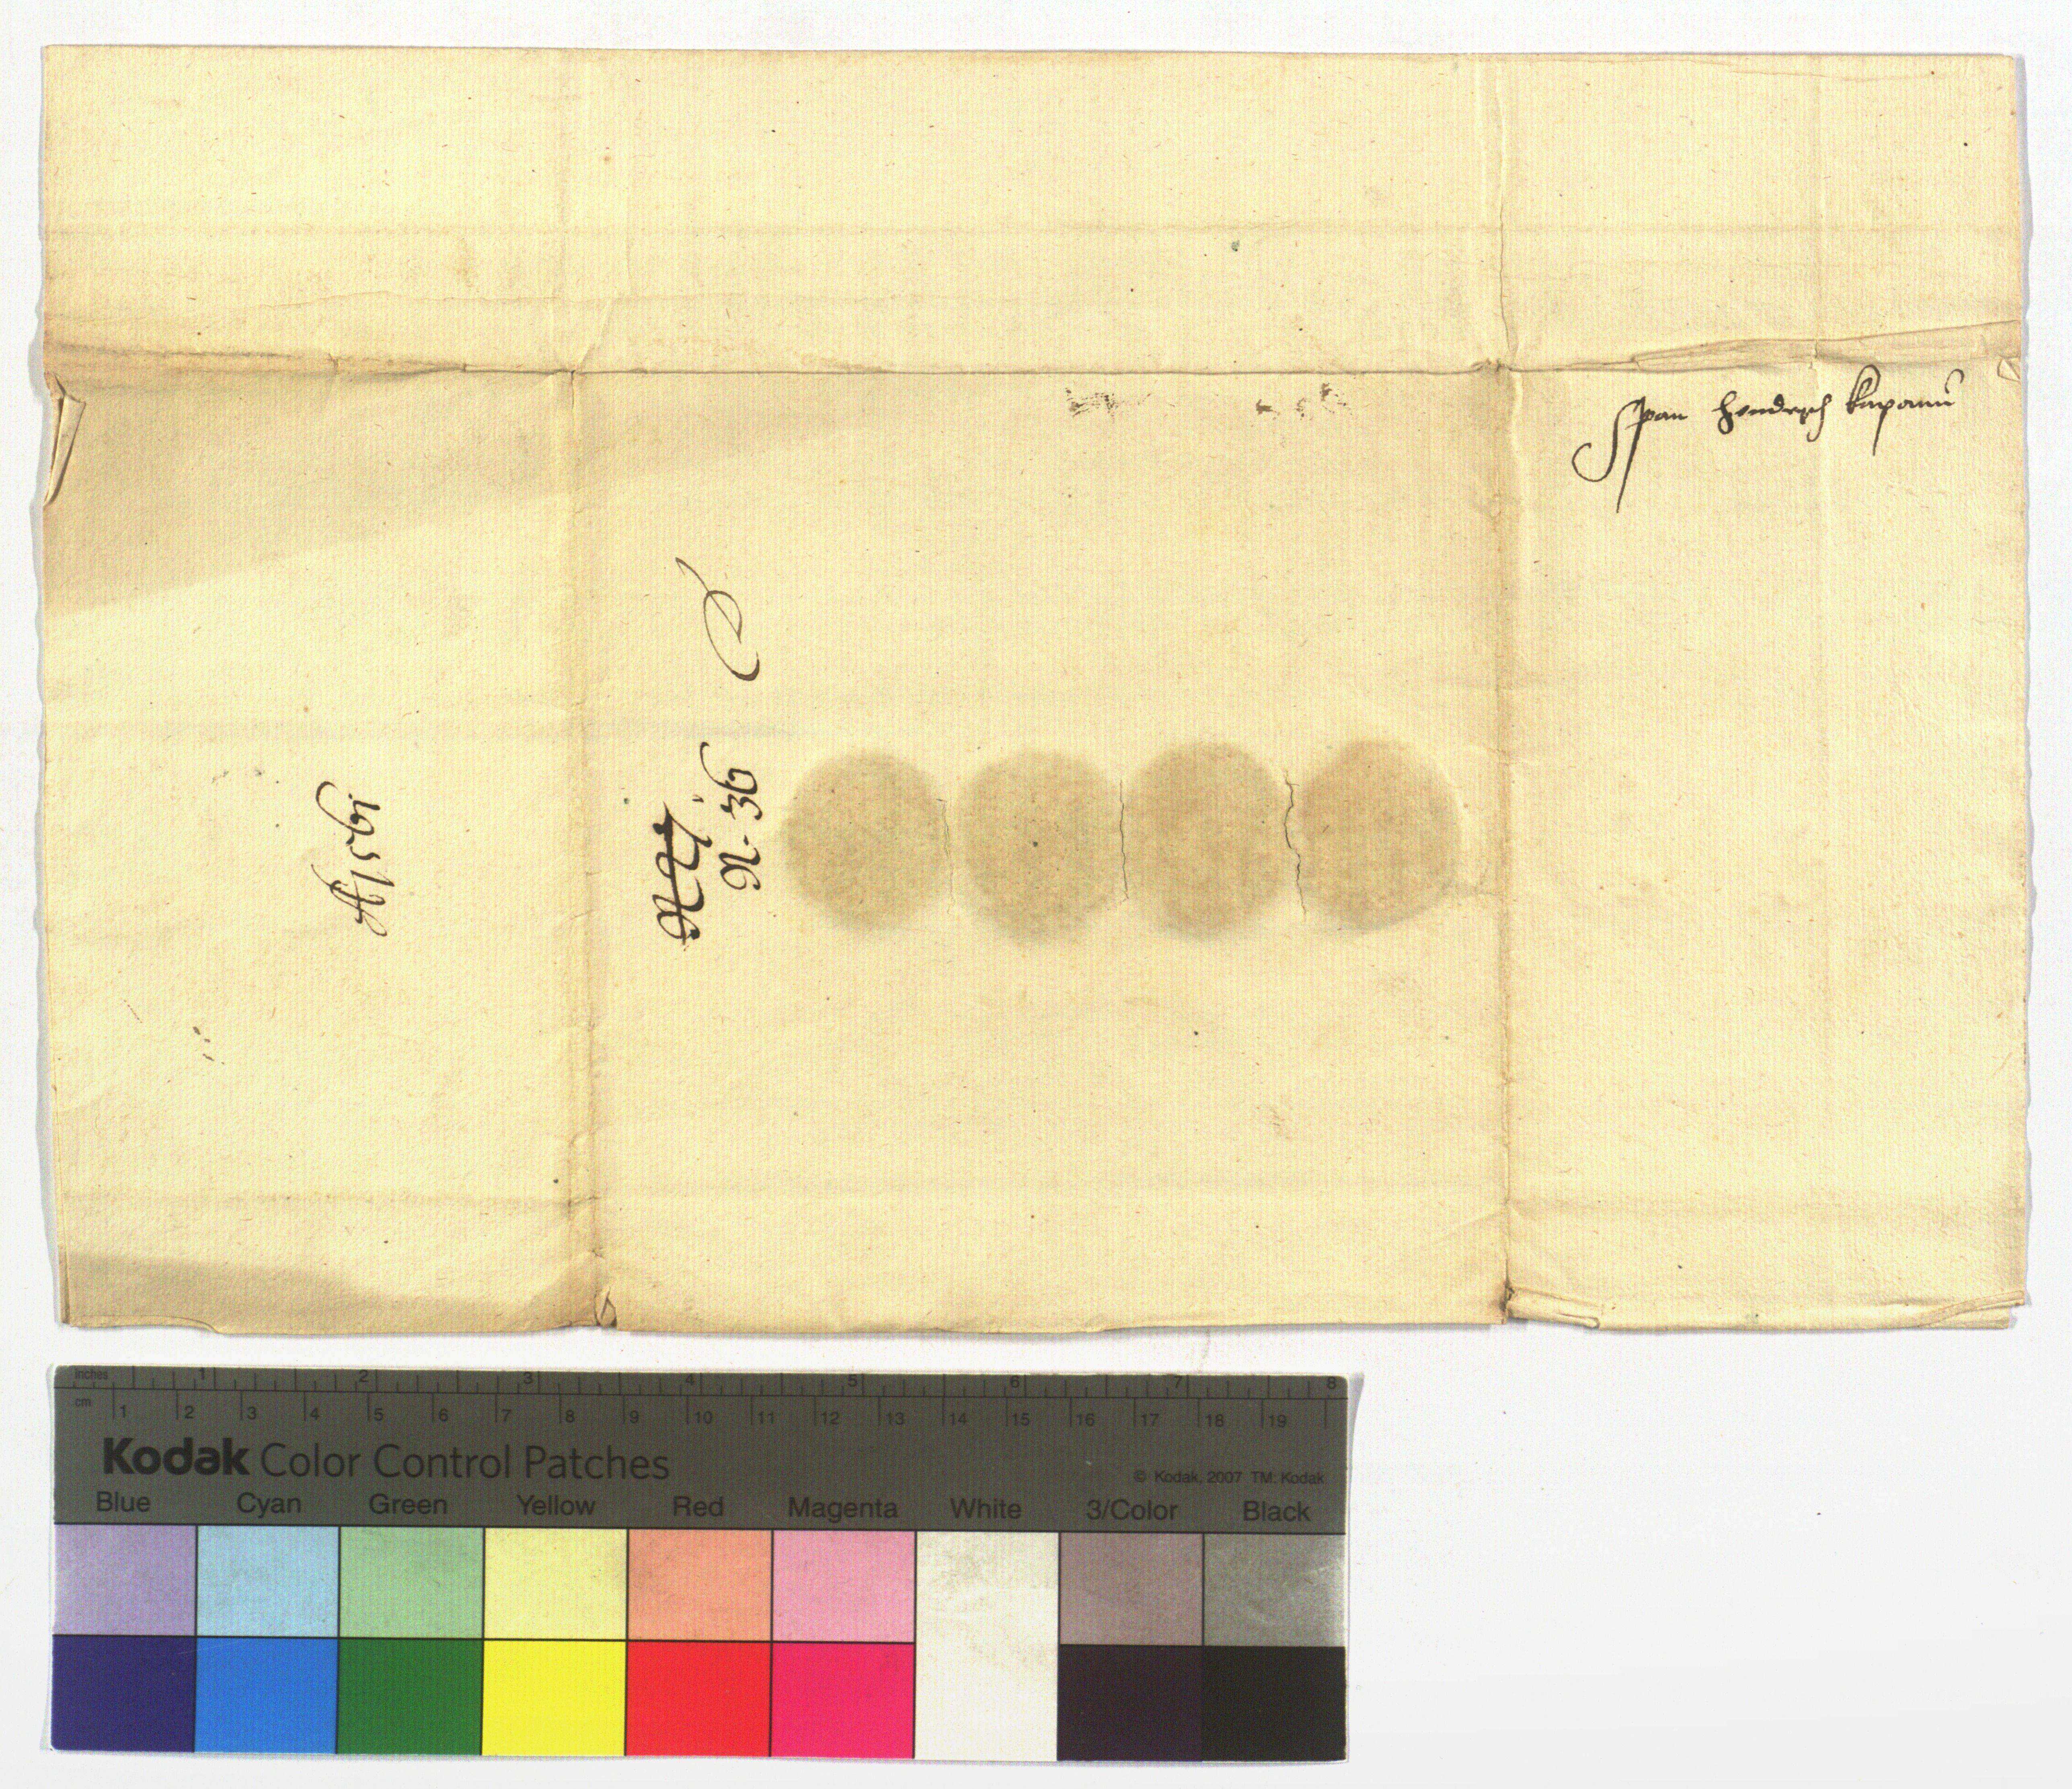 pan hendrych kapaun
A 1561
N. 36
inches 1 2 3 4 5 6 7 8
cm 1 2 3 4 5 6 7 8 9 10 11 12 13 14 15 16 17 18 19
Kodak Color Control Patches
© Kodak, 2007 TM: Kodak
Blue Cyan Green Yellow Red Magenta White 3/Color Black